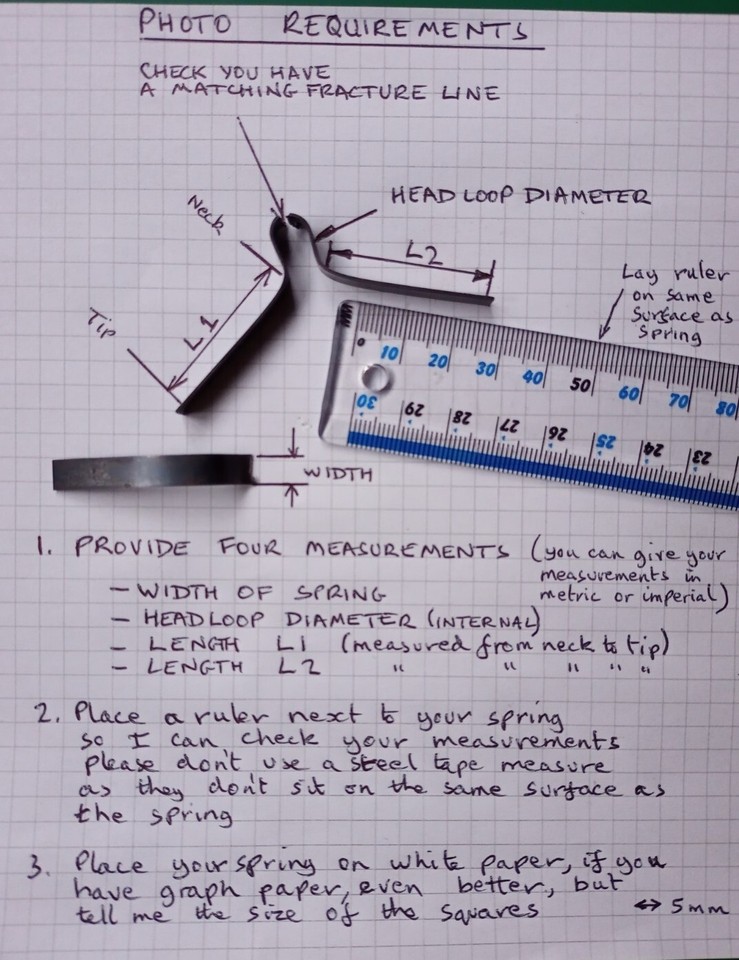 PHOTO REQUIREMENTS
CHECK YOU HAVE
A MATCHING FRACTURE LINE
Neck
HEAD LOOP DIAMETER
L2
Lay ruler
on same
surface as
spring
Tip
L1
0 10 20 30 40 50 60 70 80
30 29 28 27 26 25 24 23
WIDTH
1. PROVIDE FOUR MEASUREMENTS (you can give your
measurements in
metric or imperial)
— WIDTH OF SPRING
— HEADLOOP DIAMETER (INTERNAL)
— LENGTH L1 (measured from neck to tip)
— LENGTH L2 " " " " "
2. Place a ruler next to your spring
so I can check your measurements
please don't use a steel tape measure
as they don't sit on the same surface as
the spring
3. Place your spring on white paper, if you
have graph paper, even better, but
tell me the size of the squares ↔ 5mm